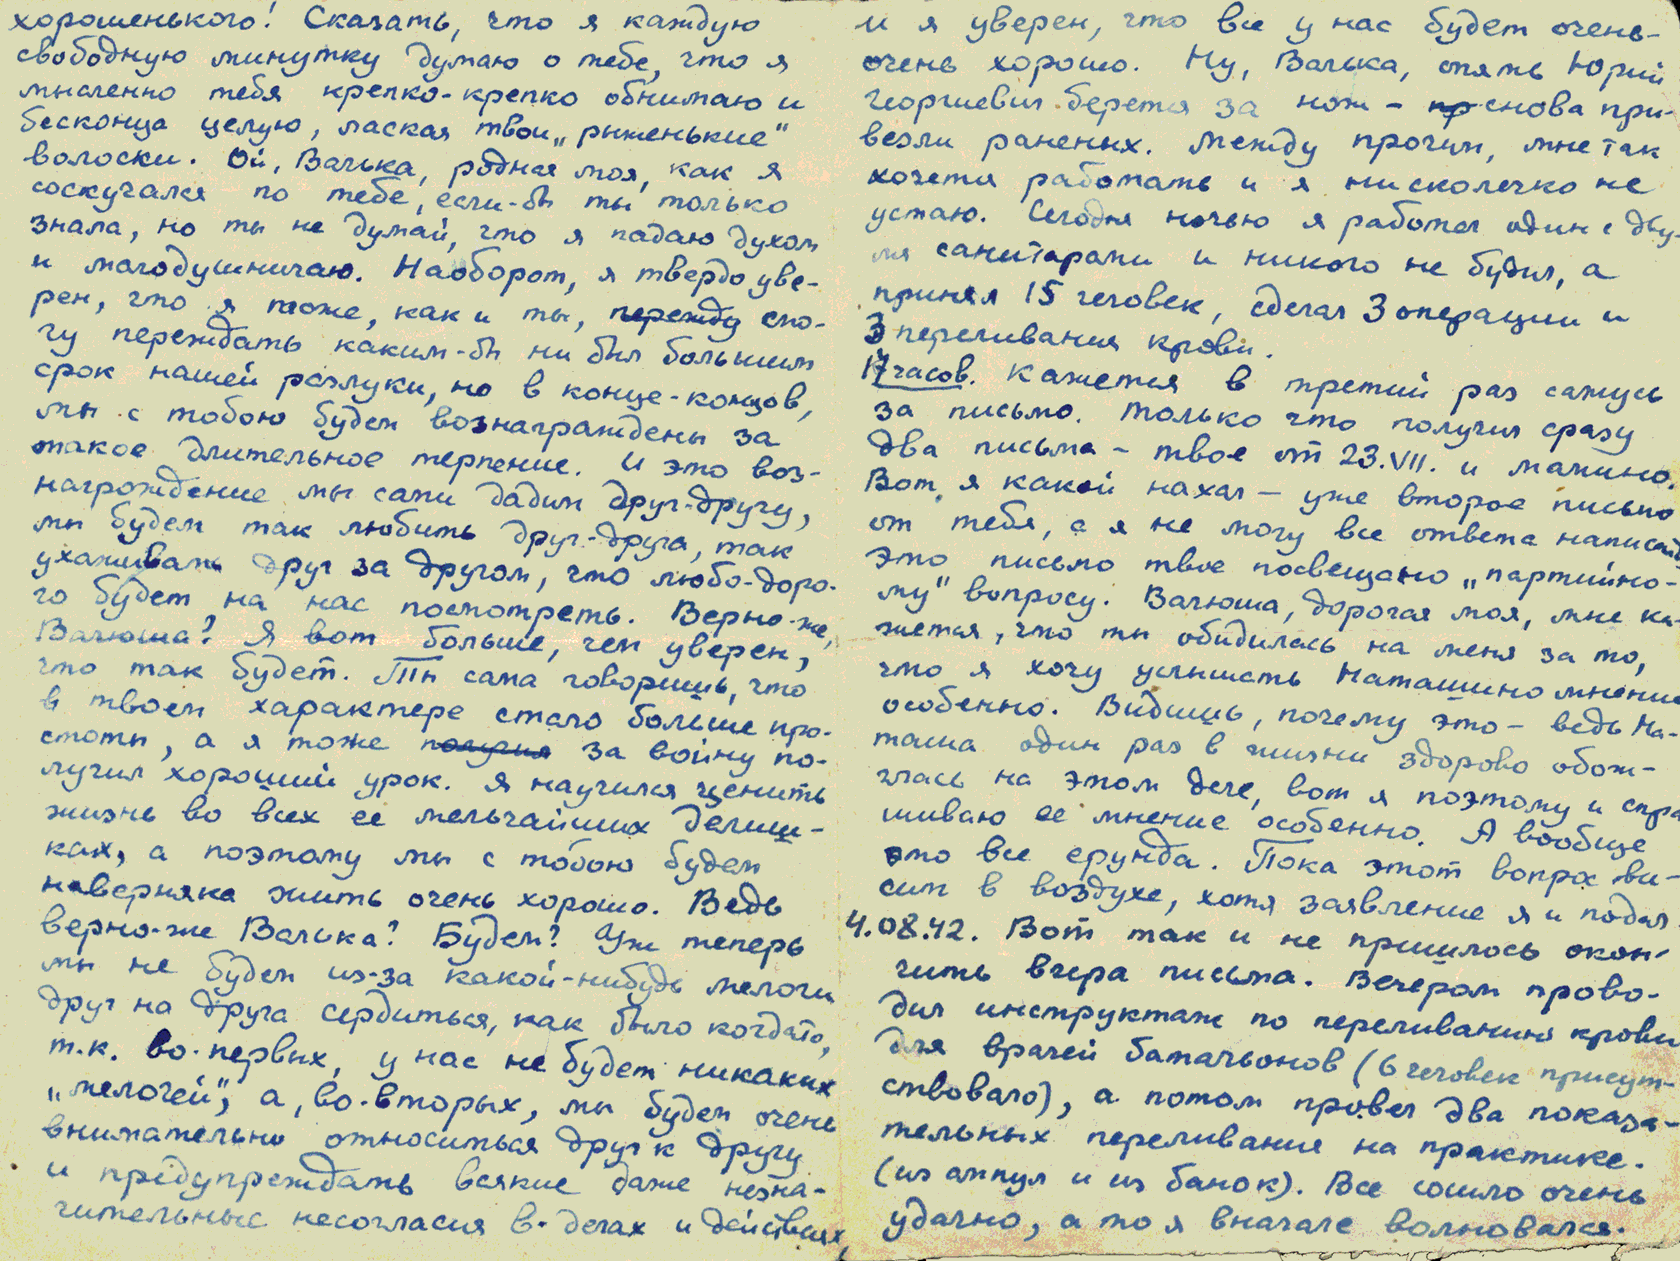 хорошенького! Сказать, что я каждую
свободную минутку думаю о тебе, что я
мысленно тебя крепко-крепко обнимаю и
бесконца целую, лаская твои „рыженькие"
волоски. Ой, Валька, родная моя, как я
соскучался по тебе, если-бы ты только
знала, но ты не думай, что я падаю духом
и малодушничаю. Наоборот, я твердо уве-
рен, что я тоже, как и ты, пережду смо-
гу переждать каким-бы ни был большим
срок нашей разлуки, но в конце-концов,
мы с тобою будем вознаграждены за
такое длительное терпение. И это воз-
награждение мы сами дадим друг-другу,
мы будем так любить друг-друга, так
ухаживать друг за другом, что любо-доро-
го будет на нас посмотреть. Верно-же,
Валюша? Я вот больше, чем уверен,
что так будет. Ты сама говоришь, что
в твоем характере стало больше про-
стоты, а я тоже получил за войну по-
лучил хороший урок. Я научился ценить
жизнь во всех ее мельчайших делиш-
ках, а поэтому мы с тобою будем
наверняка жить очень хорошо. Ведь
верно-же Валька? Будем? Уж теперь
мы не будем из-за какой-нибудь мелочи
друг на друга сердиться, как было когдато,
т.к. во-первых, у нас не будет никаких
„мелочей", а, во-вторых, мы будем очень
внимательно относиться друг к другу
и предупреждать всякие даже незна-
чительные несогласия в делах и действиях,
и я уверен, что все у нас будет очень-
очень хорошо. Ну, Валька, опять Юрий
Георгиевич берется за нож – пр снова при-
везли раненых. Между прочим, мне так
хочется работать и я нисколечко не
устаю. Сегодня ночью я работал один с дву-
мя санитарами и никого не будил, а
принял 15 человек, сделал 3 операции и
3 переливания крови.
17 часов. Кажется в третий раз сажусь
за письмо. Только что получил сразу
два письма – твое от 23.VII. и мамино.
Вот, я какой нахал – уже второе письмо
от тебя, а я не могу все ответа написать
Это письмо твое посвещано „партийно-
му" вопросу. Валюша, дорогая моя, мне ка-
жется, что ты обидилась на меня за то,
что я хочу услышать Наташино мнение
особенно. Видишь, почему это – ведь На-
таша один раз в жизни здорово обож-
глась на этом деле, вот я поэтому и спра
шиваю ее мнение особенно. А вообще
это все ерунда. Пока этот вопрос ви-
сит в воздухе, хотя заявление я и подал
4.08.42. Вот так и не пришлось окон-
чить вчера письма. Вечером прово-
дил инструктаж по переливанию крови
для врачей батальонов (6 человек присут-
ствовало), а потом провел два показа-
тельных переливание на практике.
(из ампул и из банок). Все сошло очень
удачно, а то я вначале волновался.